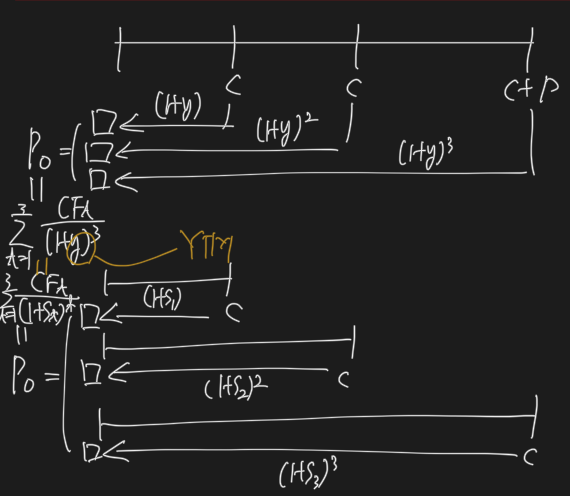 C C C+P
(1+y)
(1+y)²
(1+y)³
P₀ =
||
3 CFₜ
∑ ───
t=1 (1+y)³
YTM
||
3 CFₜ
∑ ───
t=1 (1+Sₜ)ᵗ
(1+S₁) C
||
P₀ =
(1+S₂)² C
(1+S₃)³ C